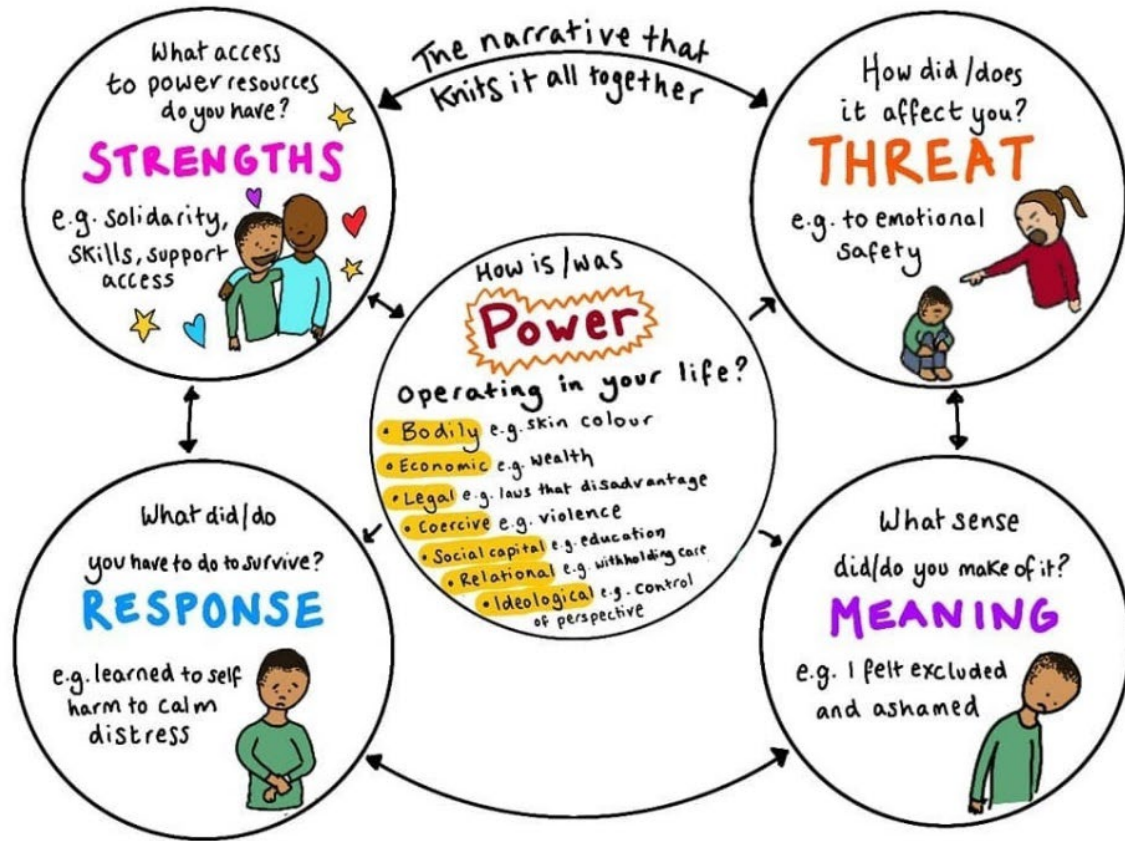 What access
to power resources
do you have?
STRENGTHS
e.g. solidarity,
skills, support
access
The narrative that
Knits it all together
How did/does
it affect you?
THREAT
e.g. to emotional
safety
How is/was
Power
Operating in your life?
• Bodily e.g. skin colour
• Economic e.g. wealth
• Legal e.g. laws that disadvantage
• Coercive e.g. violence
• Social capital e.g. education
• Relational e.g. withholding care
• Ideological e.g. control
of perspective
What did/do
you have to do to survive?
RESPONSE
e.g. learned to self
harm to calm
distress
What sense
did/do you make of it?
MEANING
e.g. I felt excluded
and ashamed